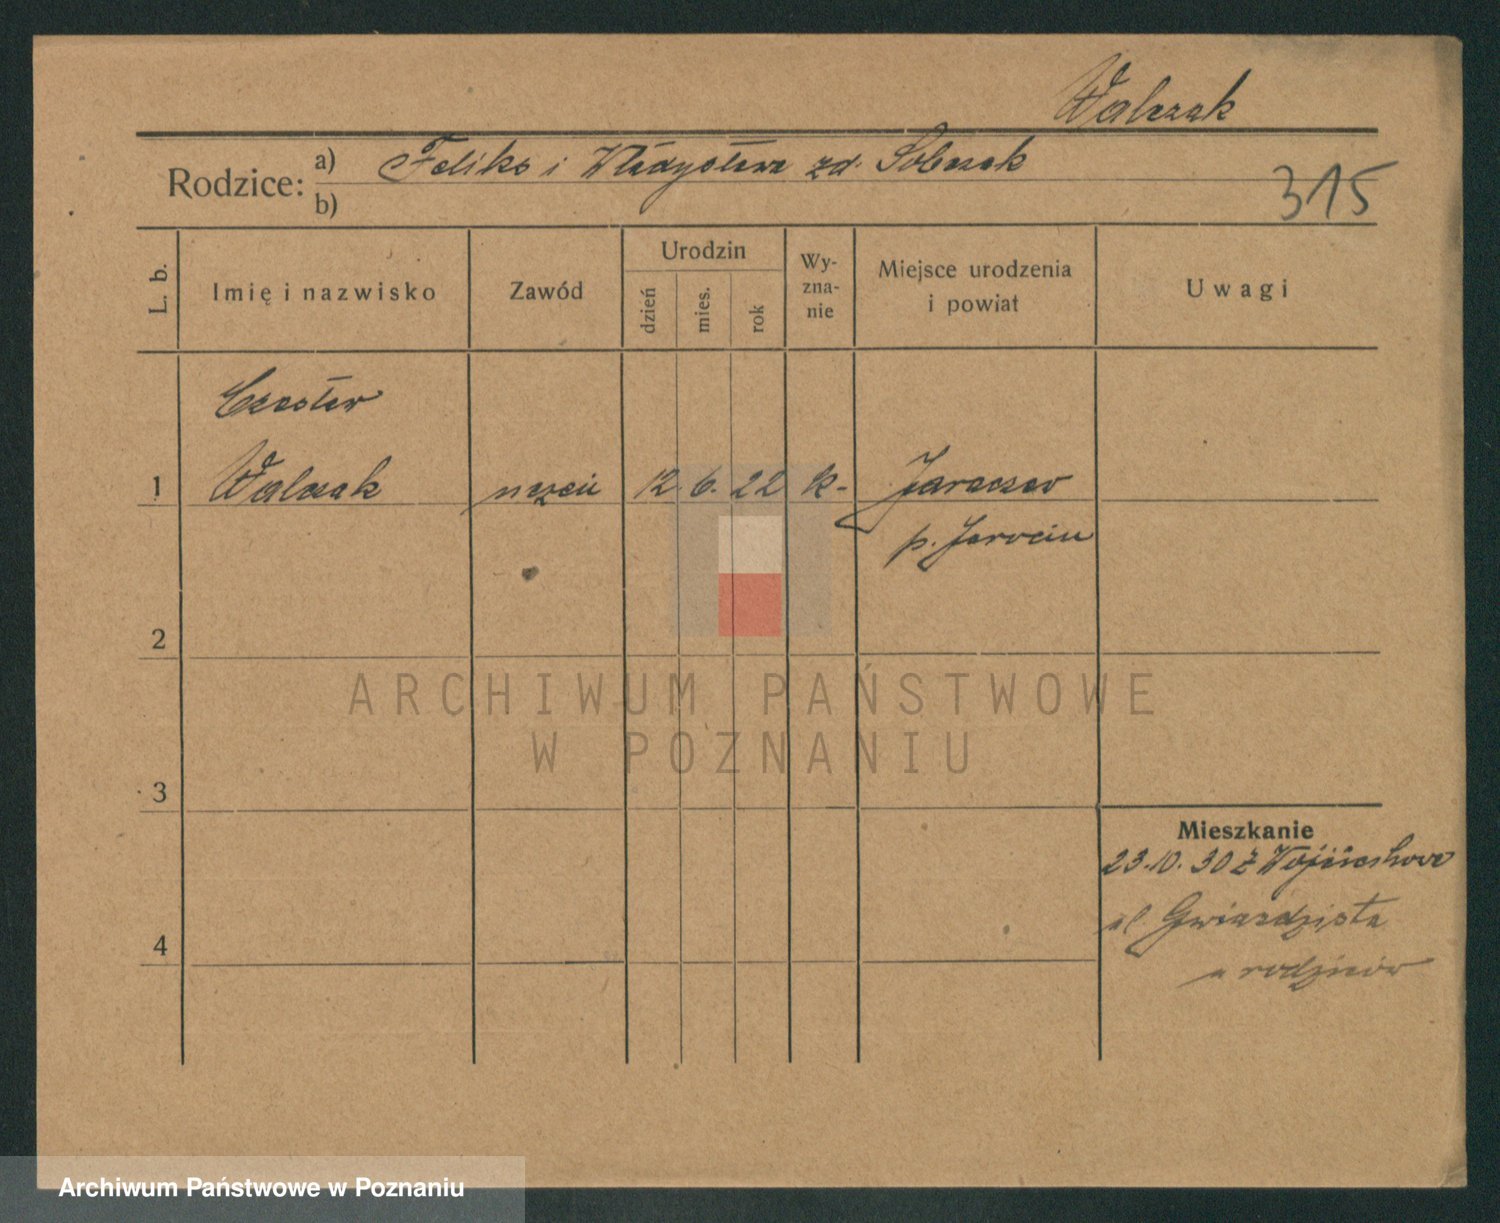 Walczak
Rodzice: a) Feliks i Władysława zd. Sobczak
b)
315
L. b.
Imię i nazwisko
Zawód
Urodzin
dzień
mies.
rok
Wy-
zna-
nie
Miejsce urodzenia
i powiat
Uwagi
Czesław
1 Walczak uczeń 12 6. 22 k- Jaraczew
p. Jarocin
2
ARCHIWUM PAŃSTWOWE
W POZNANIU
3
Mieszkanie
23.10.30 z
ul. Gwiaździsta
4
u rodziców
Archiwum Państwowe w Poznaniu